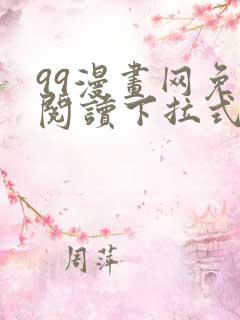 99漫畫网免
閱讀下拉式
周萍